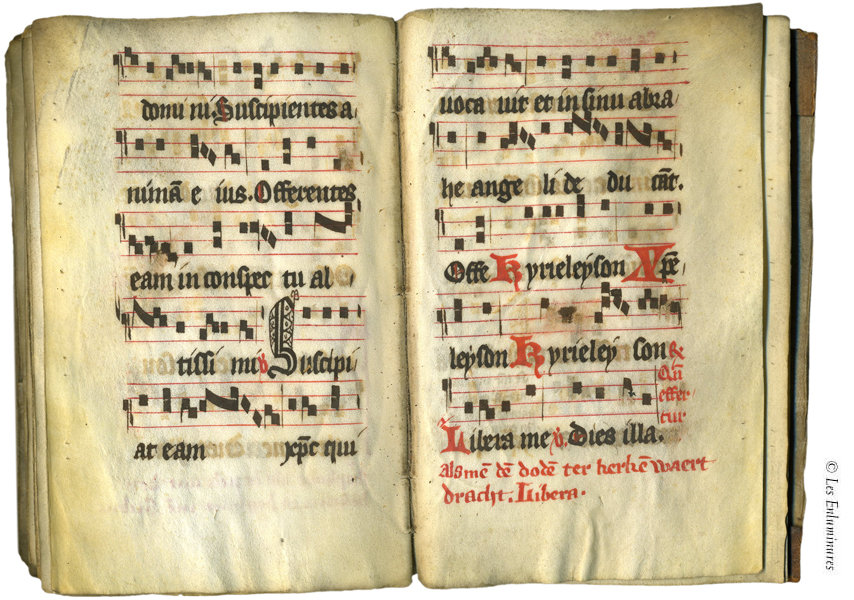 domi ni Suscipientes a
nimā e ius. Offerentes
eam in conspec tu al
tissi mi v̄ Suscipi
at eam xp̄c qui
uoca uit et in sinu abra
he ange li de du cāt.
Offe Kyrieleyson Xp̄e
leyson Kyrieley son R
Qn̄
effer
tur
Libera me v̄ Dies illa.
alsmē dē dodē ter kerkē waert
dracht. Libera.
© Les Enluminures